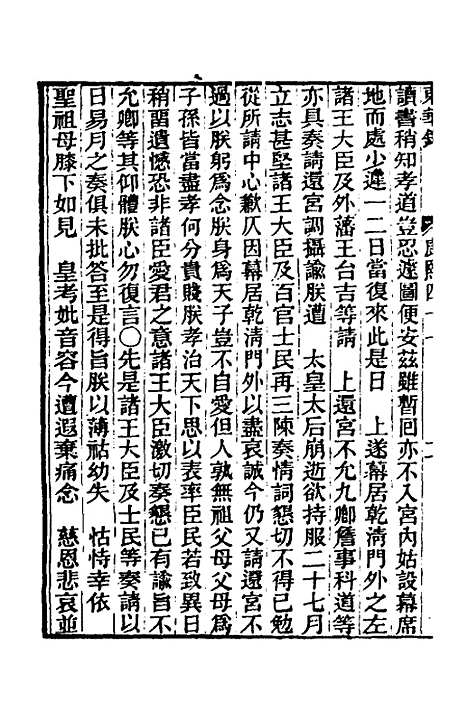 東華錄 康熙四十 二
讀書稍知孝道豈忍遽圖便安茲雖暫囘亦不入宮內姑設幕席
地而處少遲一二日當復來此是日 上遂幕居乾淸門外之左
諸王大臣及外藩王台吉等請 上還宮不允九卿詹事科道等
亦具奏請還宮調攝諭朕遭 太皇太后崩逝欲持服二十七月
立志甚堅諸王大臣及百官士民再三陳奏情詞懇切不得已勉
從所請中心歉仄因幕居乾淸門外以盡哀誠今仍又請還宮不
過以朕躬爲念朕身爲天子豈不自愛但人孰無祖父母父母爲
子孫皆當盡孝何分貴賤朕孝治天下思以表率臣民若致異日
稍留遺憾恐非諸臣愛君之意諸王大臣激切奏懇已有諭旨不
允卿等其仰體朕心勿復言○先是諸王大臣及士民等奏請以
日易月之奏俱未批答至是得旨朕以薄祜幼失 怙恃幸依
聖祖母膝下如見 皇考妣音容今遭遐棄痛念 慈恩悲哀並